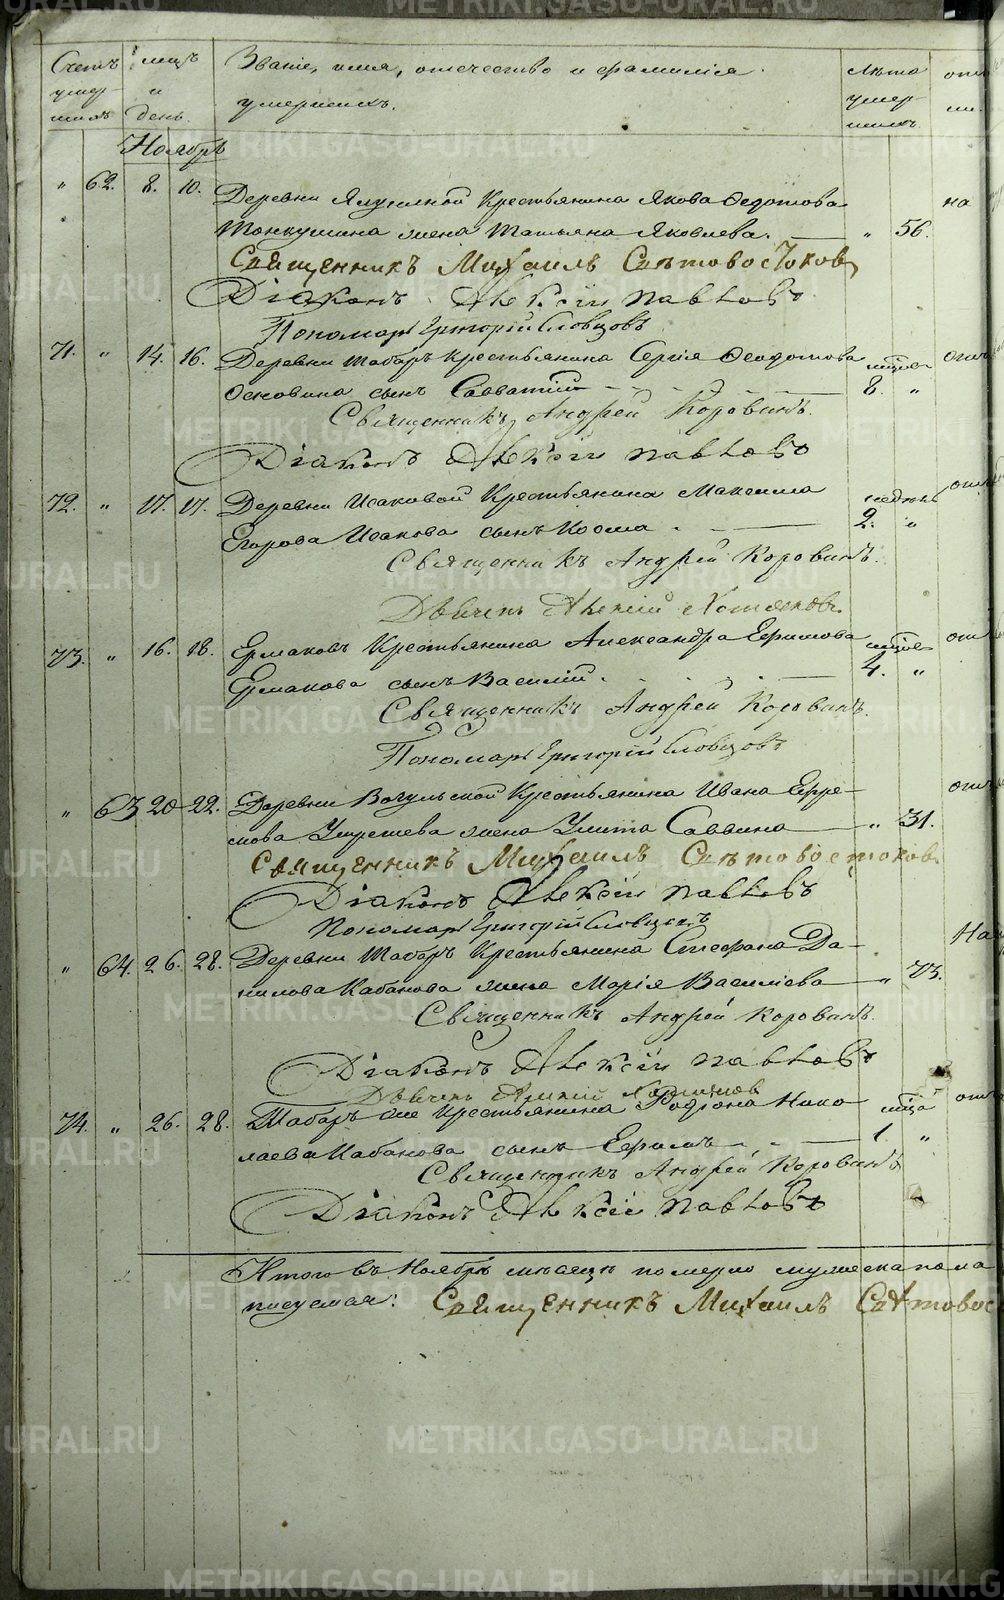 Счетъ умер- шихъ
Мцъ и день.
Званіе, имя, отечество и фамилія умершихъ.
Лѣта умер- шихъ
Ноябрь
" 62. 8. 10. Деревни Крестьянина Якова Ѳедотова
жена Татьяна Яковлева. " 56. на
Священникъ Михаилъ Свѣтовостоковъ
Діаконъ Алексій Павловъ
Пономарь Григорій Словцовъ
71. " 14. 16. Деревни Шабаръ Крестьянина Сергія Ѳеодотова мцѣв
Основина сынъ Савватій 8. "
Священникъ Андрей Коровинъ.
Діаконъ Алексій Павловъ
72. " 17. 17. Деревни Исаковой Крестьянина Максима недѣль
Егорова Исакова сынъ Косма 2. "
Священникъ Андрей Коровинъ.
Дьячекъ Алексій Хомяковъ.
73. " 16. 18. Ермаковъ Крестьянина Александра Ефимова мцѣв
Ермакова сынъ Василій. 4. "
Священникъ Андрей Коровинъ.
Пономарь Григорій Словцовъ
" 63 20 22. Деревни Вогульской Крестьянина Ивана Ефре-
мова жена Улита Саввина " 31.
Священникъ Михаилъ Свѣтовостоковъ.
Діаконъ Алексій Павловъ
Пономарь Григорій Словцовъ
" 64. 26. 28. Деревни Шабаръ Крестьянина Стефана Да-
нилова Кабакова жена Марія Василіева " 73.
Священникъ Андрей Коровинъ.
Діаконъ Алексій Павловъ
Дьячекъ Алексій Хомяковъ
74. " 26. 28. Шабаръ Крестьянина Родіона Нико- мцѣ
лаева Кабакова сынъ Ефимъ 1. "
Священникъ Андрей Коровинъ
Діаконъ Алексій Павловъ
Итого въ Ноябрѣ мѣсяцѣ померло мужеска пола
писуемая: Священникъ Михаилъ Свѣтовос
METRIKI.GASO-URAL.RU